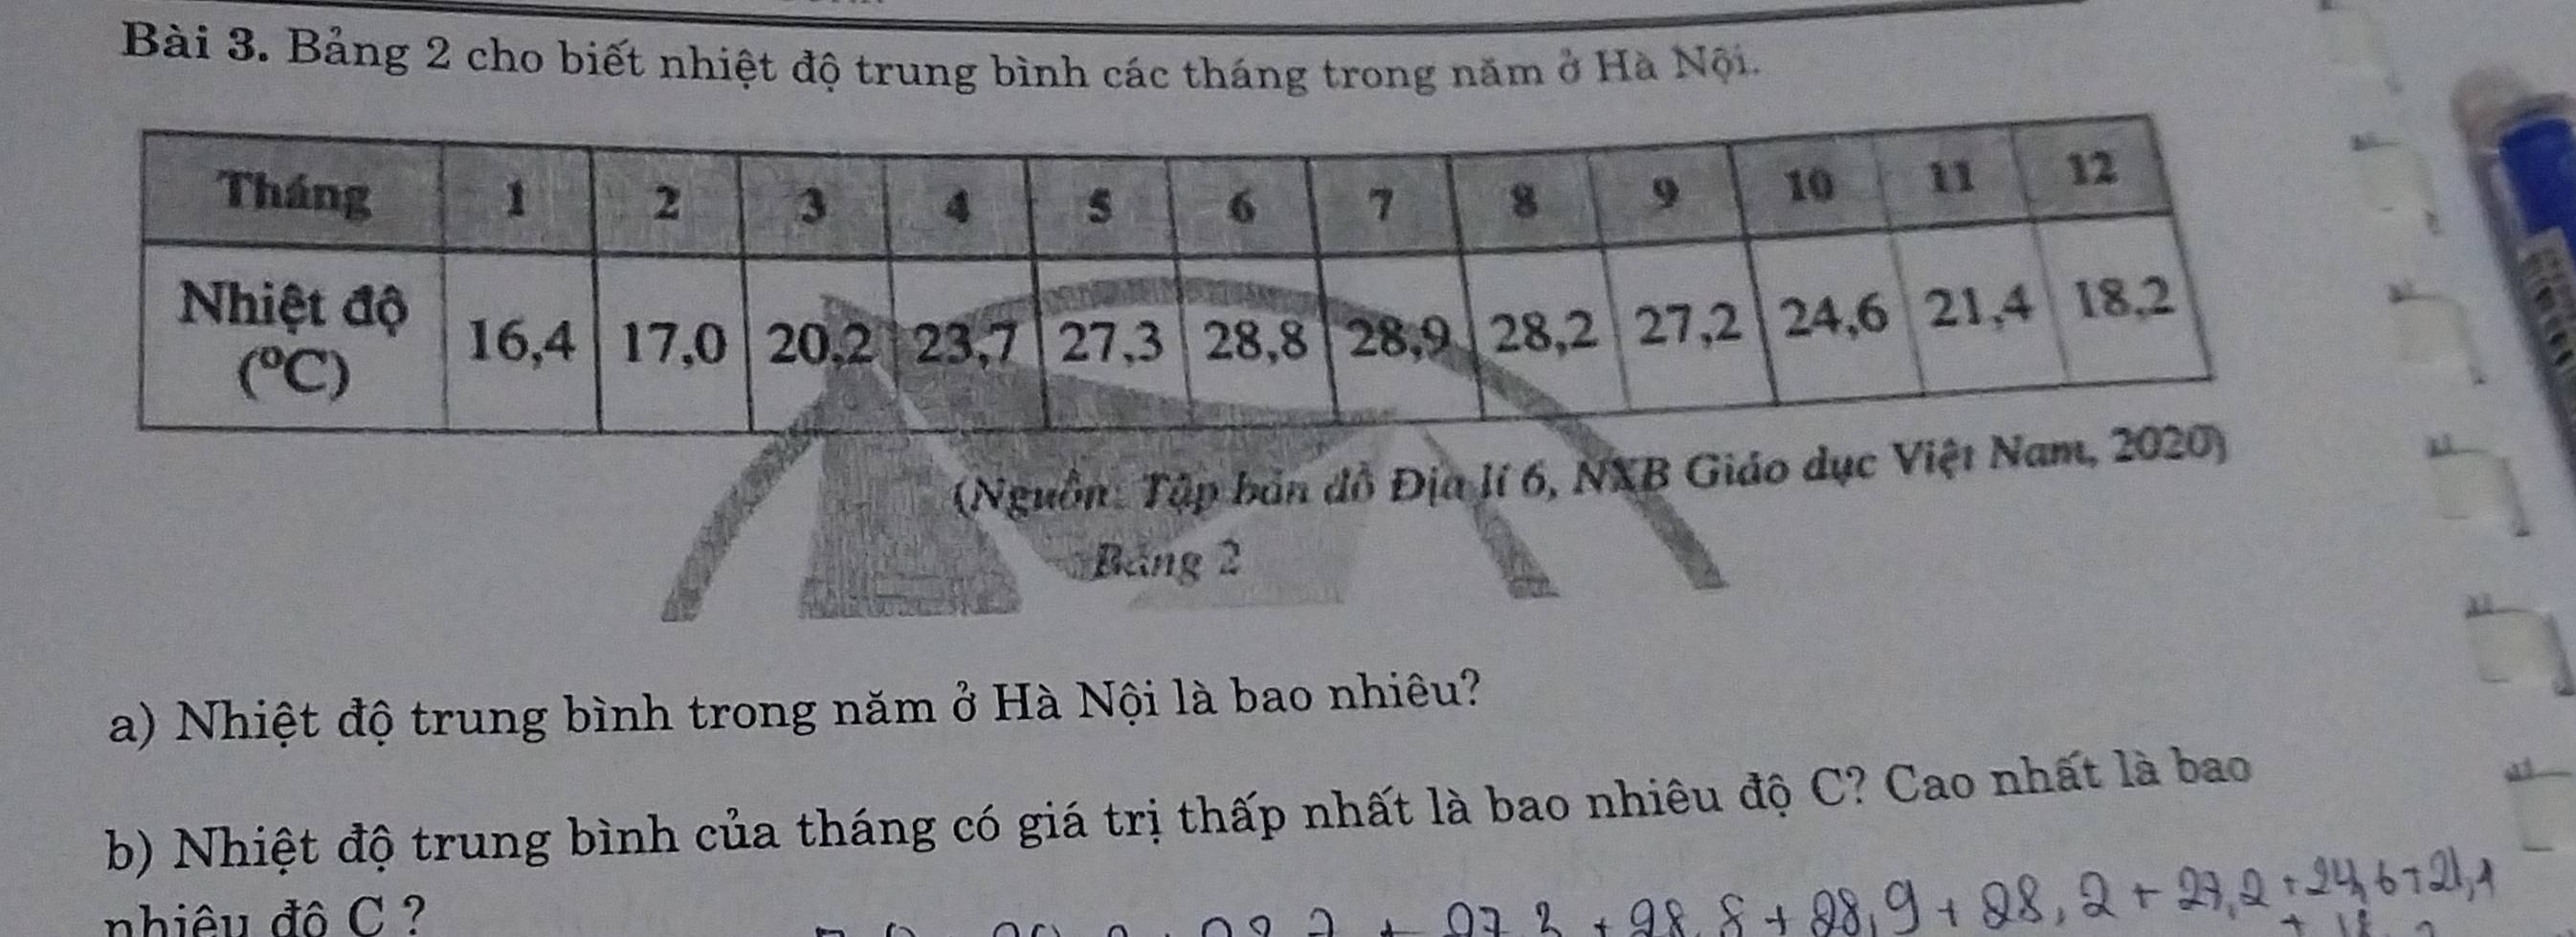 Bài 3. Bảng 2 cho biết nhiệt độ trung bình các tháng trong năm ở Hà Nội.
Tháng 1 2 3 4 5 6 7 8 9 10 11 12
Nhiệt độ (°C) 16,4 17,0 20,2 23,7 27,3 28,8 28,9 28,2 27,2 24,6 21,4 18,2
(Nguồn: Tập bản đồ Địa lí 6, NXB Giáo dục Việt Nam, 2020)
Bảng 2
a) Nhiệt độ trung bình trong năm ở Hà Nội là bao nhiêu?
b) Nhiệt độ trung bình của tháng có giá trị thấp nhất là bao nhiêu độ C? Cao nhất là bao
nhiêu độ C ?
+ 28,8 + 28,9 + 28,2 + 27,2 + 24,6 +